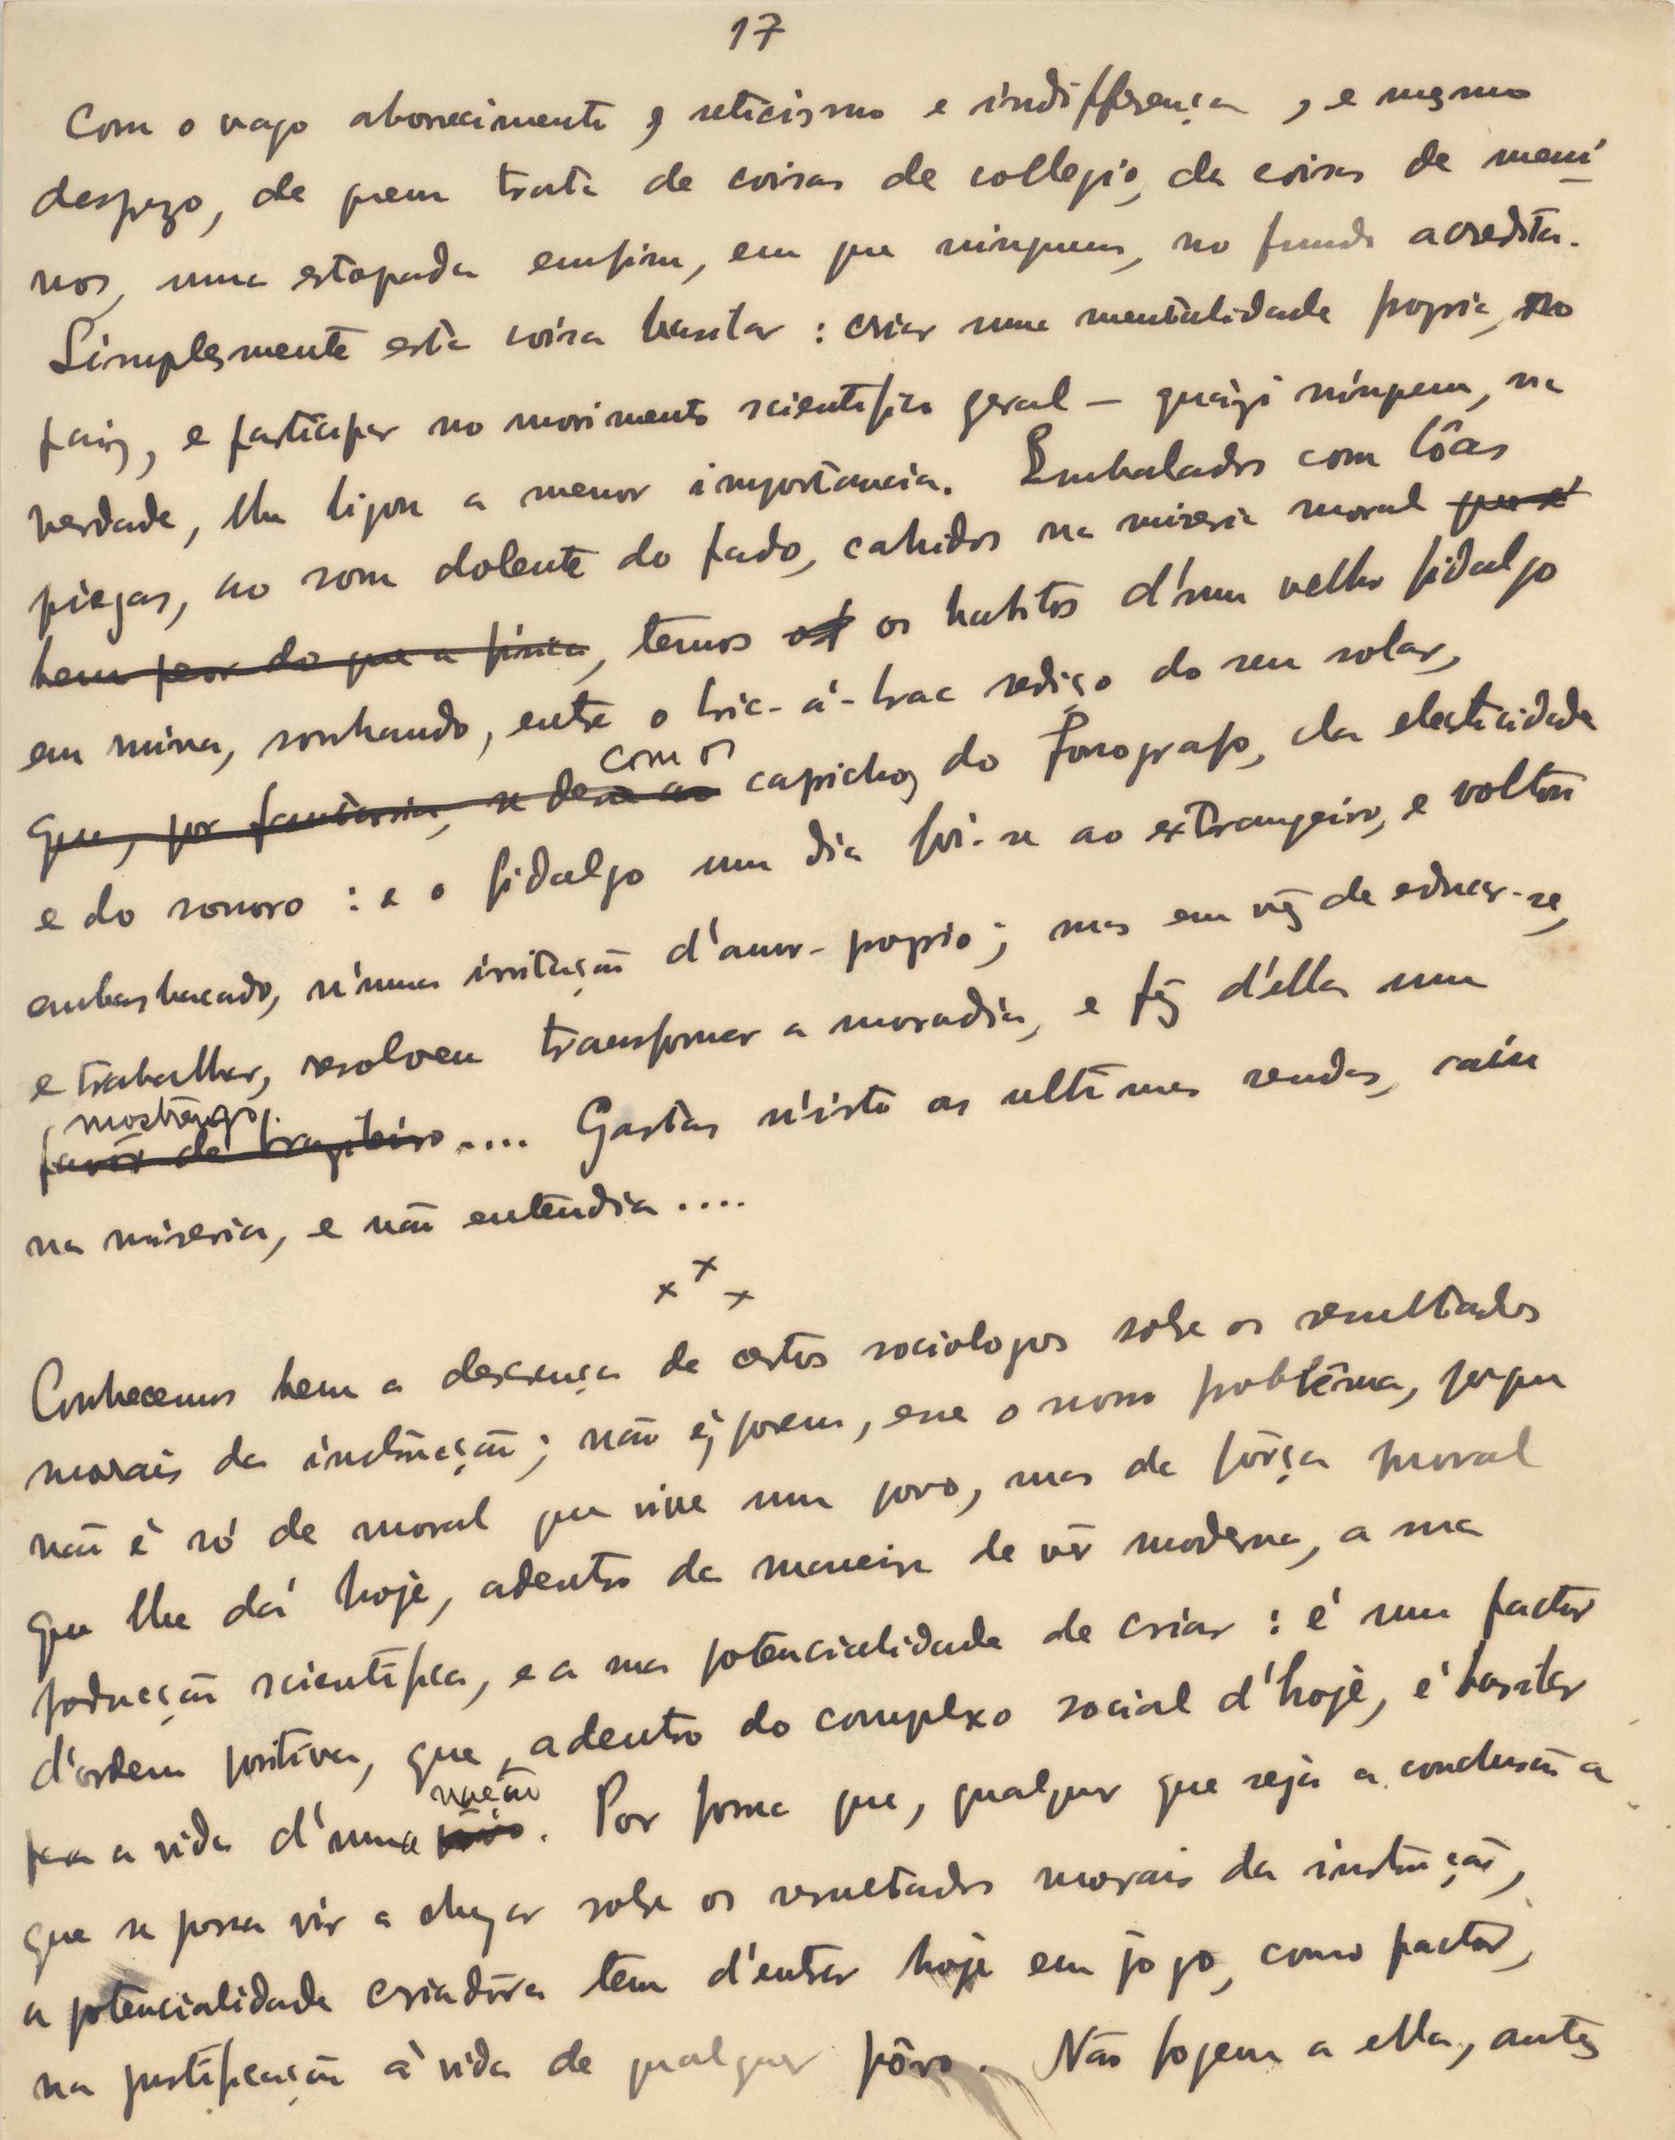 17
Com o vago aborrecimento, sceticismo e indifferença, e mesmo
desprezo, de quem trata de coisas de collegio, de coisas de meni
nos, uma estopada emfim, em que ninguem, no fundo acredita.
Simplesmente esta coisa basilar: criar uma mentalidade propria, no
paiz, e participar no movimento scientifico geral — quázi ninguem, na
verdade, lhe ligou a menor importancia. Embalados com lôas
piegas, ao som dolente do fado, cahidos na miseria moral que é
bem peor do que a fisica, temos os habitos d'um velho fidalgo
em ruina, sonhando, entre o bric-á-brac rediço do seu solar,
com os
que, por fantasia, se dera ao caprichos do Fonografo, da electricidade
e do sonoro: e o fidalgo um dia foi-se ao extrangeiro, e voltou
embasbacado, n'uma irritação d'amor-proprio; mas em vez de educar-se,
e trabalhar, resolveu transformar a moradia, e fez d'ella um
mostrengo
de brazileiro .... Gastas n'isto as ultimas rendas, caiu
na miseria, e não entendia ....
x x x
Conhecemos bem a descrença de certos sociologos sobre os resultados
morais da instrucção; não é, porem, esse o nosso problêma, porque
não é só de moral que vive um povo, mas da fôrça moral
que lhe dá hoje, adentro da maneira de vêr moderna, a sua
producção scientifica, e a sua potencialidade de criar: é um factor
d'ordem positiva, que, adentro do complexo social d'hoje, é basilar
nação
para a vida d'uma povo. Por forma que, qualquer que seja a conclusão a
que se possa vir a chegar sobre os resultados morais da instrucção,
a potencialidade criadôra tem d'entrar hoje em jogo, como factor,
na justificação á vida de qualquer pôvo. Não fogem a ella, antes